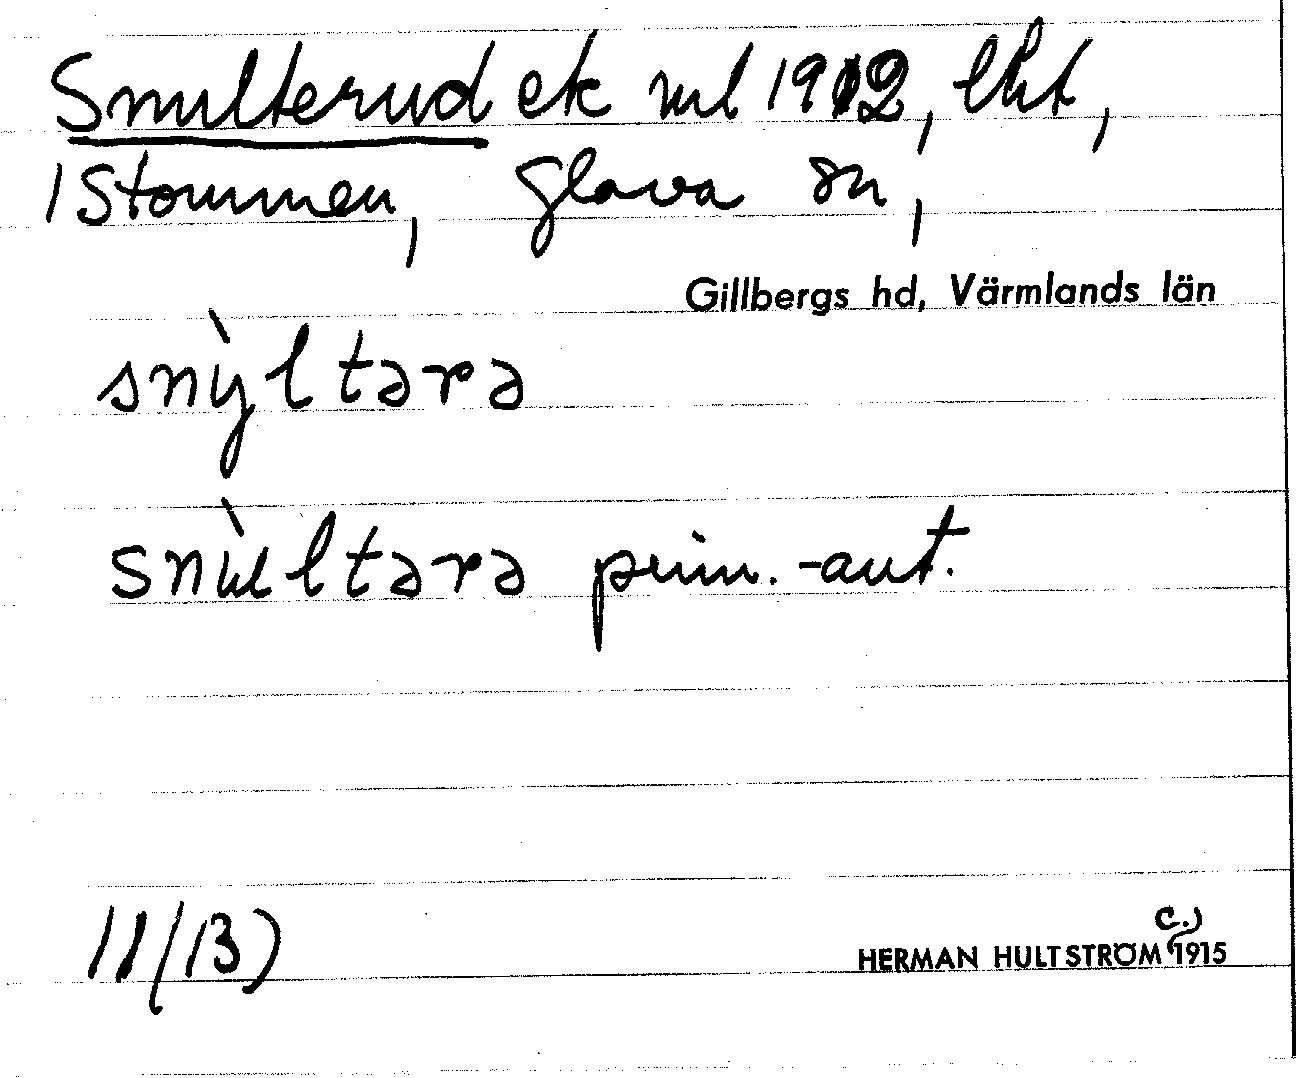 Snulterud ek nul 1912, lht,
1 Stommen, Glava sn,
Gillbergs hd, Värmlands län
snỳltərə
snùltərə prim.-aut.
11/13)
c.)
HERMAN HULTSTRÖM 1915